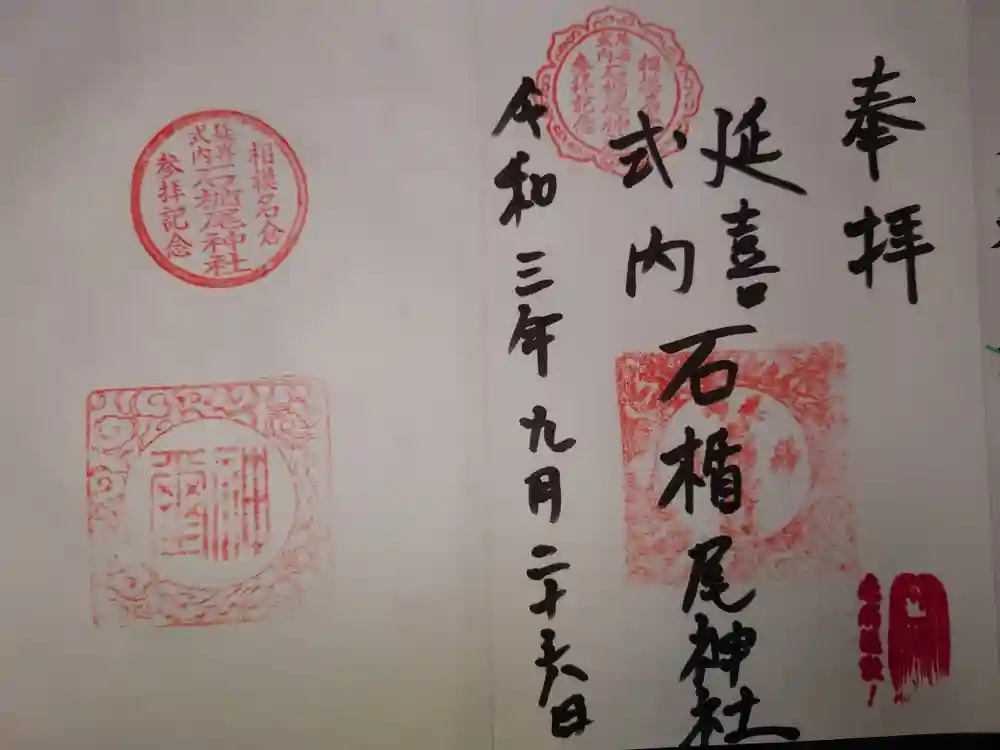 奉拝
延喜
式内
石楯尾神社
令和三年九月二十六日
相模名倉
延喜
式内
石楯尾神社
参拝記念
相模名倉
延喜
式内
石楯尾神社
参拝記念